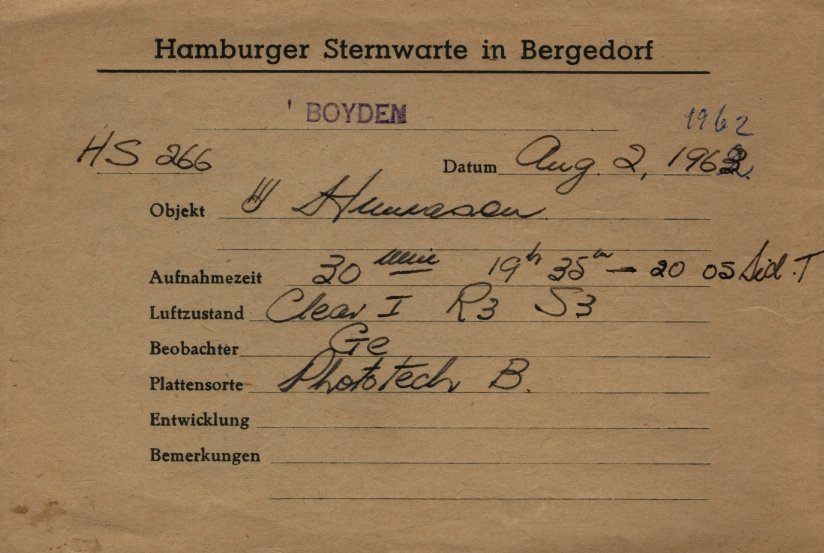 Hamburger Sternwarte in Bergedorf
' BOYDEN
1962
HS 266 Datum Aug. 2, 1962
Objekt Humason
Aufnahmezeit 30 min 19h 35m — 20 05 Sid. T
Luftzustand Clear I R3 S3
Beobachter Ge
Plattensorte Phototech B.
Entwicklung
Bemerkungen